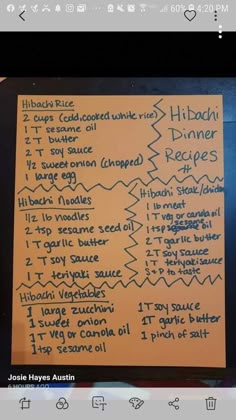 60% 4:20 PM
Hibachi Rice
2 cups (cold, cooked white rice)
1 T sesame oil
2 T butter
2 T soy sauce
1/2 sweet onion (chopped)
1 large egg
Hibachi
Dinner
Recipes
Hibachi Noodles
1/2 lb noodles
2 tsp sesame seed oil
1 T garlic butter
2 T soy sauce
1 T teriyaki sauce
Hibachi Steak/chicken
1 lb meat
1 T veg or canola oil
1 tsp sesame oil
2 T garlic butter
2 T soy sauce
1 T teriyaki sauce
S + P to taste
Hibachi Vegetables
1 large zucchini
1 sweet onion
1 T veg or canola oil
1 tsp sesame oil
1 T soy sauce
1T garlic butter
1 pinch of salt
Josie Hayes Austin
6 HOURS AGO